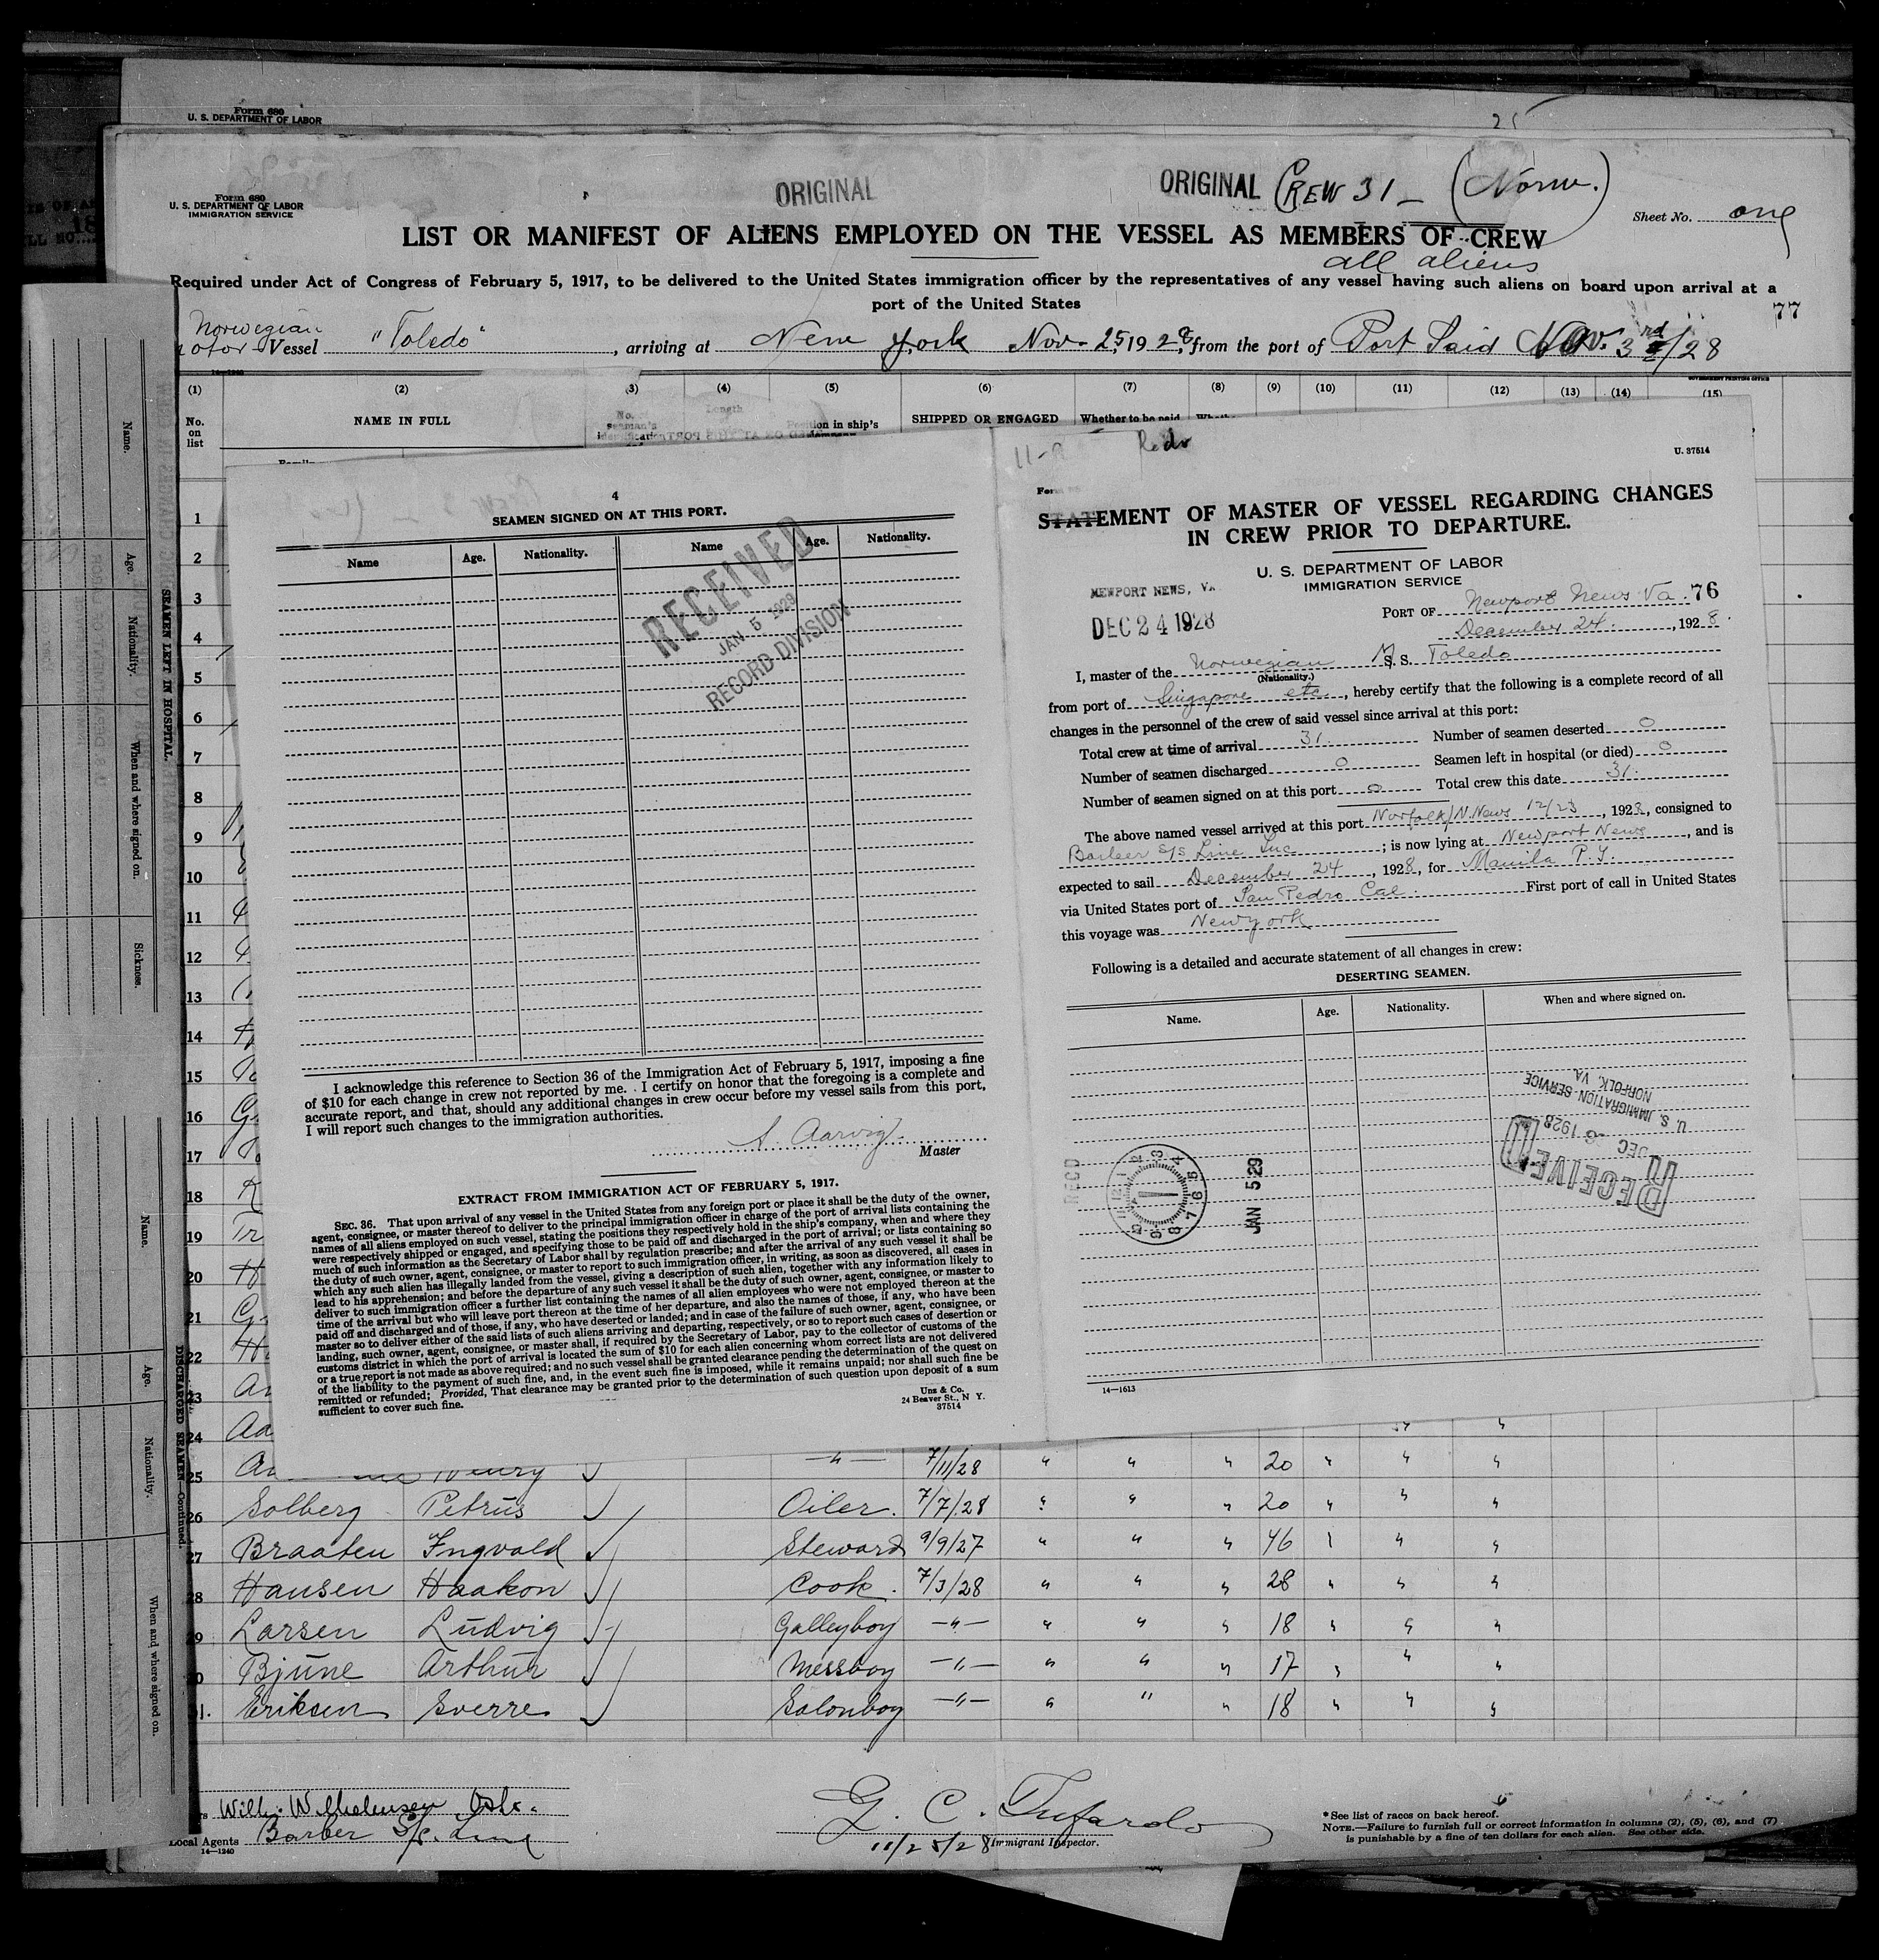 Form 680
U. S. DEPARTMENT OF LABOR
25
Form 680
U. S. DEPARTMENT OF LABOR
IMMIGRATION SERVICE
ORIGINAL
ORIGINAL CREW 31 - (Norw.)
Sheet No. one
LIST OR MANIFEST OF ALIENS EMPLOYED ON THE VESSEL AS MEMBERS OF CREW
all aliens
Required under Act of Congress of February 5, 1917, to be delivered to the United States immigration officer by the representatives of any vessel having such aliens on board upon arrival at a
port of the United States
77
Norwegian
Vessel "Toledo", arriving at New York Nov. 25, 1928, from the port of Port Said Nov. 3rd/28
(1) (2) (3) (4) (5) (6) (7) (8) (9) (10) (11) (12) (13) (14) (15)
No. on list
NAME IN FULL
SHIPPED OR ENGAGED
Whether to be paid
4
SEAMEN SIGNED ON AT THIS PORT.
Name Age. Nationality. Name Age. Nationality.
RECEIVED
JAN 5 1929
RECORD DIVISION
I acknowledge this reference to Section 36 of the Immigration Act of February 5, 1917, imposing a fine
of $10 for each change in crew not reported by me. I certify on honor that the foregoing is a complete and
accurate report, and that, should any additional changes in crew occur before my vessel sails from this port,
I will report such changes to the immigration authorities.
Aarvig
Master
EXTRACT FROM IMMIGRATION ACT OF FEBRUARY 5, 1917.
SEC. 36. That upon arrival of any vessel in the United States from any foreign port or place it shall be the duty of the owner,
agent, consignee, or master thereof to deliver to the principal immigration officer in charge of the port of arrival lists containing the
names of all aliens employed on such vessel, stating the positions they respectively hold in the ship's company, when and where they
were respectively shipped or engaged, and specifying those to be paid off and discharged in the port of arrival; or lists containing so
much of such information as the Secretary of Labor shall by regulation prescribe; and after the arrival of any such vessel it shall be
the duty of such owner, agent, consignee, or master to report to such immigration officer, in writing, as soon as discovered, all cases in
which any such alien has illegally landed from the vessel, giving a description of such alien, together with any information likely to
lead to his apprehension; and before the departure of any such vessel it shall be the duty of such owner, agent, consignee, or master to
deliver to such immigration officer a further list containing the names of all alien employees who were not employed thereon at the
time of the arrival but who will leave port thereon at the time of her departure, and also the names of those, if any, who have been
paid off and discharged and of those, if any, who have deserted or landed; and in case of the failure of such owner, agent, consignee, or
master so to deliver either of the said lists of such aliens arriving and departing, respectively, or so to report such cases of desertion or
landing, such owner, agent, consignee, or master shall, if required by the Secretary of Labor, pay to the collector of customs of the
customs district in which the port of arrival is located the sum of $10 for each alien concerning whom correct lists are not delivered
or a true report is not made as above required; and no such vessel shall be granted clearance pending the determination of the quest on
of the liability to the payment of such fine, and, in the event such fine is imposed, while it remains unpaid; nor shall such fine be
remitted or refunded; Provided, That clearance may be granted prior to the determination of such question upon deposit of a sum
sufficient to cover such fine.
Unz & Co.
24 Beaver St., N Y.
37514
U. 37514
STATEMENT OF MASTER OF VESSEL REGARDING CHANGES
IN CREW PRIOR TO DEPARTURE.
U. S. DEPARTMENT OF LABOR
IMMIGRATION SERVICE
NEWPORT NEWS, VA.
DEC 24 1928
PORT OF Newport News Va. 76
December 24., 1928.
I, master of the Norwegian M S. S. Toledo
(Nationality.)
from port of Singapore etc., hereby certify that the following is a complete record of all
changes in the personnel of the crew of said vessel since arrival at this port:
Total crew at time of arrival 31. Number of seamen deserted 0
Number of seamen discharged 0 Seamen left in hospital (or died) 0
Number of seamen signed on at this port 0 Total crew this date 31.
The above named vessel arrived at this port Norfolk/N.News 12/23, 1928, consigned to
Barber S/S Line Inc; is now lying at Newport News, and is
expected to sail December 24, 1928, for Manila P. I.
via United States port of San Pedro Cal. First port of call in United States
this voyage was New York
Following is a detailed and accurate statement of all changes in crew:
DESERTING SEAMEN.
Name. Age. Nationality. When and where signed on.
U. S. IMMIGRATION SERVICE
NORFOLK, VA
RECEIVED
DEC 1928
REC'D
JAN 5 29
14—1613
SEAMEN LEFT IN HOSPITAL.
Name. Age. Nationality. When and where signed on. Sickness.
DISCHARGED SEAMEN—Continued.
Name. Age. Nationality. When and where signed on.
1
2
3
4
5
6
7
8
9
10
11
12
13
14
15
16
17
18
19
20
21
22
23
24
25 Henry —"— 7/11/28 " " " 20 " " "
26 Solberg Petrus Oiler. 7/7/28 " " " 20 " " "
27 Braaten Ingvald Steward 9/9/27 " " " 46 " " "
28 Hansen Haakon Cook. 7/3/28 " " " 28 " " "
29 Larsen Ludvig Galleyboy —"— " " " 18 " " "
30 Bjune Arthur Messboy —"— " " " 17 " " "
31. Eriksen Sverre Salonboy —"— " " " 18 " " "
Wilh. Wilhelmsen Oslo.
Local Agents Barber S/S. Line
14—1240
G. C. Tufarolo
11/25/28 Immigrant Inspector.
*See list of races on back hereof.
NOTE.—Failure to furnish full or correct information in columns (2), (5), (6), and (7)
is punishable by a fine of ten dollars for each alien. See other side.